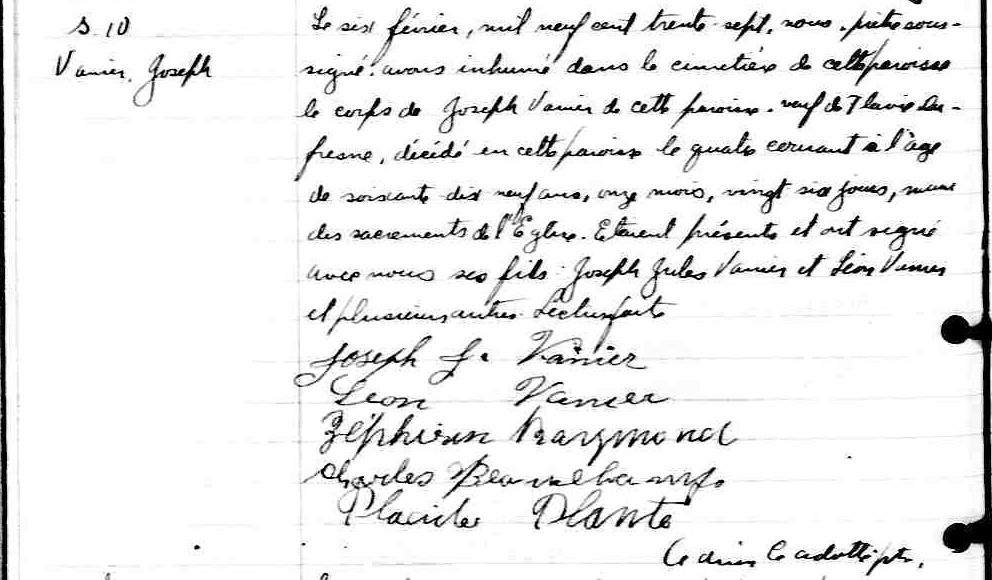 S. 10
Vanier, Joseph
Le six février, mil neuf cent trente-sept, nous, prêtre sous-
signé, avons inhumé dans le cimetière de cette paroisse
le corps de Joseph Vanier de cette paroisse, veuf de Flavie Du-
fresne, décédé en cette paroisse le quatre courant à l'âge
de soixante dix neuf ans, onze mois, vingt six jours, muni
des sacrements de l'Église. Etaient présents et ont signé
avec nous ses fils: Joseph Jules Vanier et Léon Vanier
et plusieurs autres. Lecture faite
Joseph J. Vanier
Leon Vanier
Zéphirin Raymond
Charles Beauchamp.
Placide Plante
ptre.